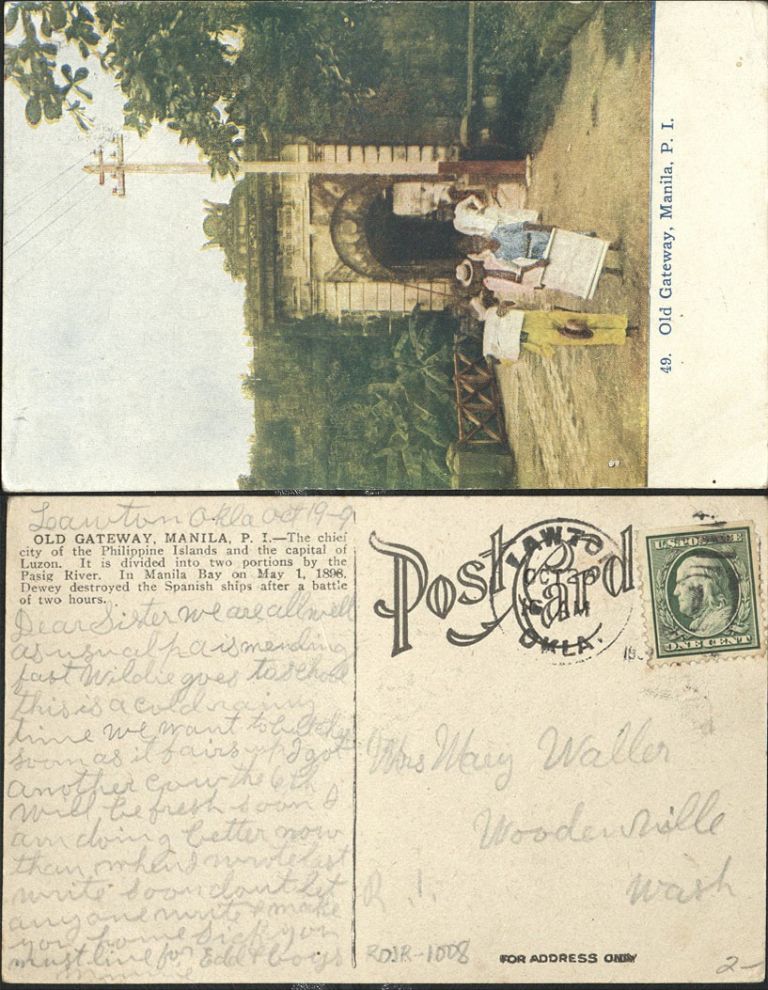 49. Old Gateway, Manila, P. I.
Lawton Okla Oct 19-9
OLD GATEWAY, MANILA, P. I.—The chief
city of the Philippine Islands and the capital of
Luzon. It is divided into two portions by the
Pasig River. In Manila Bay on May 1, 1898,
Dewey destroyed the Spanish ships after a battle
of two hours.
Dear Sister we are all well
as usual pa is mending
fast Wildie goes to schole
this is a cold rainy
time we want to but they
soon as it fairs up I got
another cow the 6th
will be fresh soon I
am doing better now
than when I wrote last
write soon dont let
anyone write & make
you home sick you
must live for Edd & boys
Post Card
LAWTON
OCT 20
AM
OKLA.
U.S. POSTAGE
ONE CENT
Mrs Mary Waller
Woodenville
R. 1. Wash
RDJR-1008
FOR ADDRESS ONLY
2-